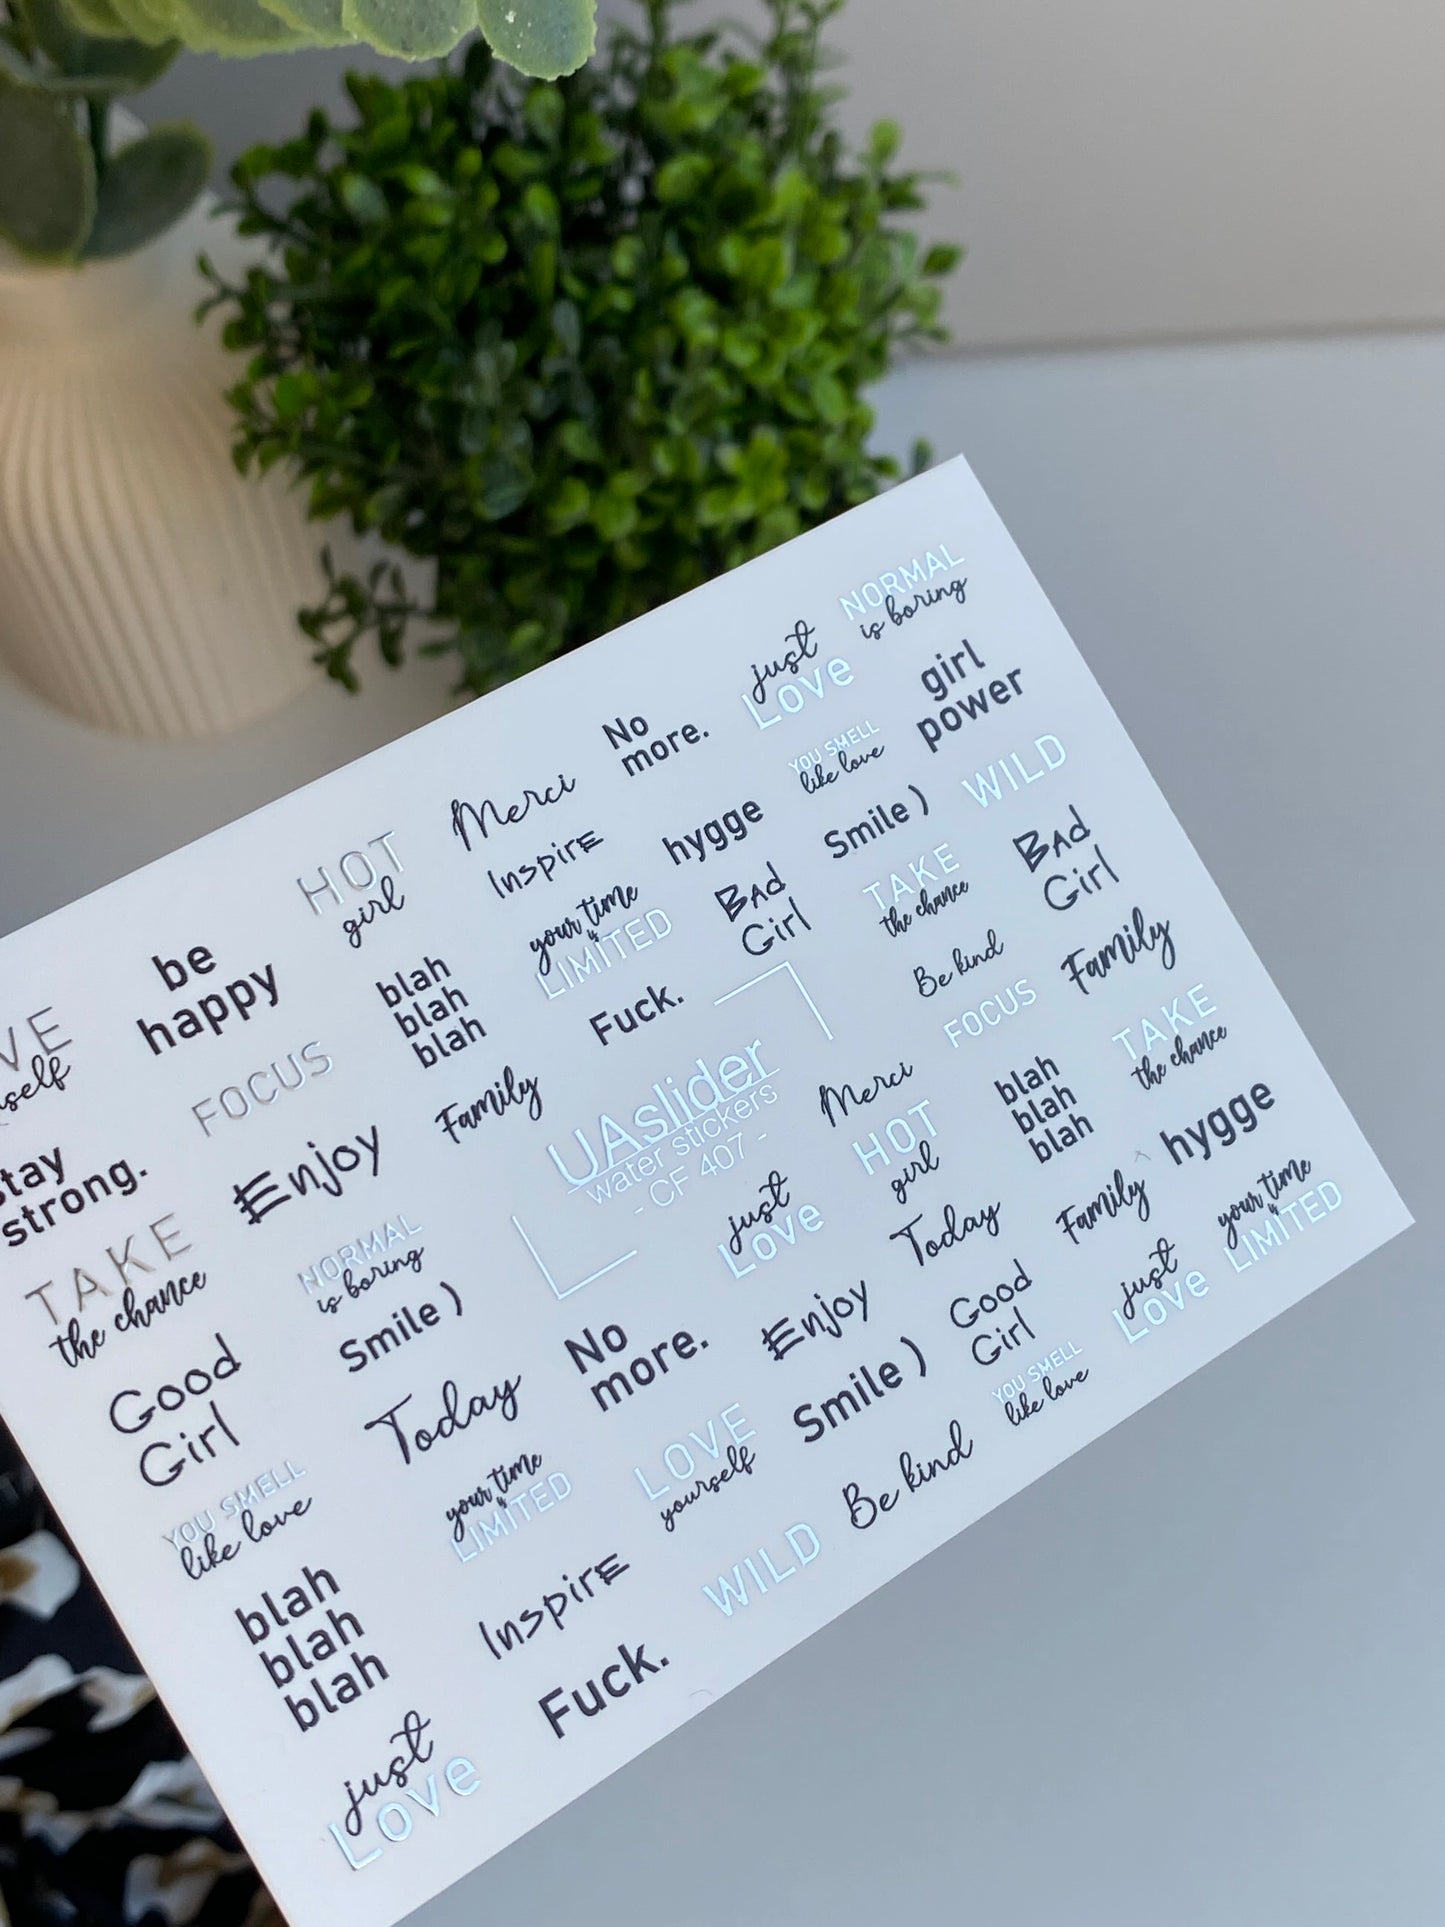 NORMAL
is boring
just
Love
girl
power
No
more.
YOU SMELL
like love
WILD
Merci
hygge
Smile )
BAd
Girl
HOT
girl
InspirE
TAKE
the chance
your time
is
LIMITED
BAd
Girl
Be kind
Family
be
happy
blah
blah
blah
Fuck.
FOCUS
TAKE
the chance
FOCUS
Family
UAslider
water stickers
- CF 407 -
Merci
blah
blah
blah
hygge
strong.
Enjoy
HOT
girl
Family
your time
is
LIMITED
TAKE
the chance
NORMAL
is boring
just
Love
Today
just
Love
Smile )
No
more.
Enjoy
Good
Girl
Good
Girl
Today
Smile )
YOU SMELL
like love
YOU SMELL
like love
your time
is
LIMITED
LOVE
yourself
Be kind
blah
blah
blah
InspirE
WILD
Fuck.
just
Love